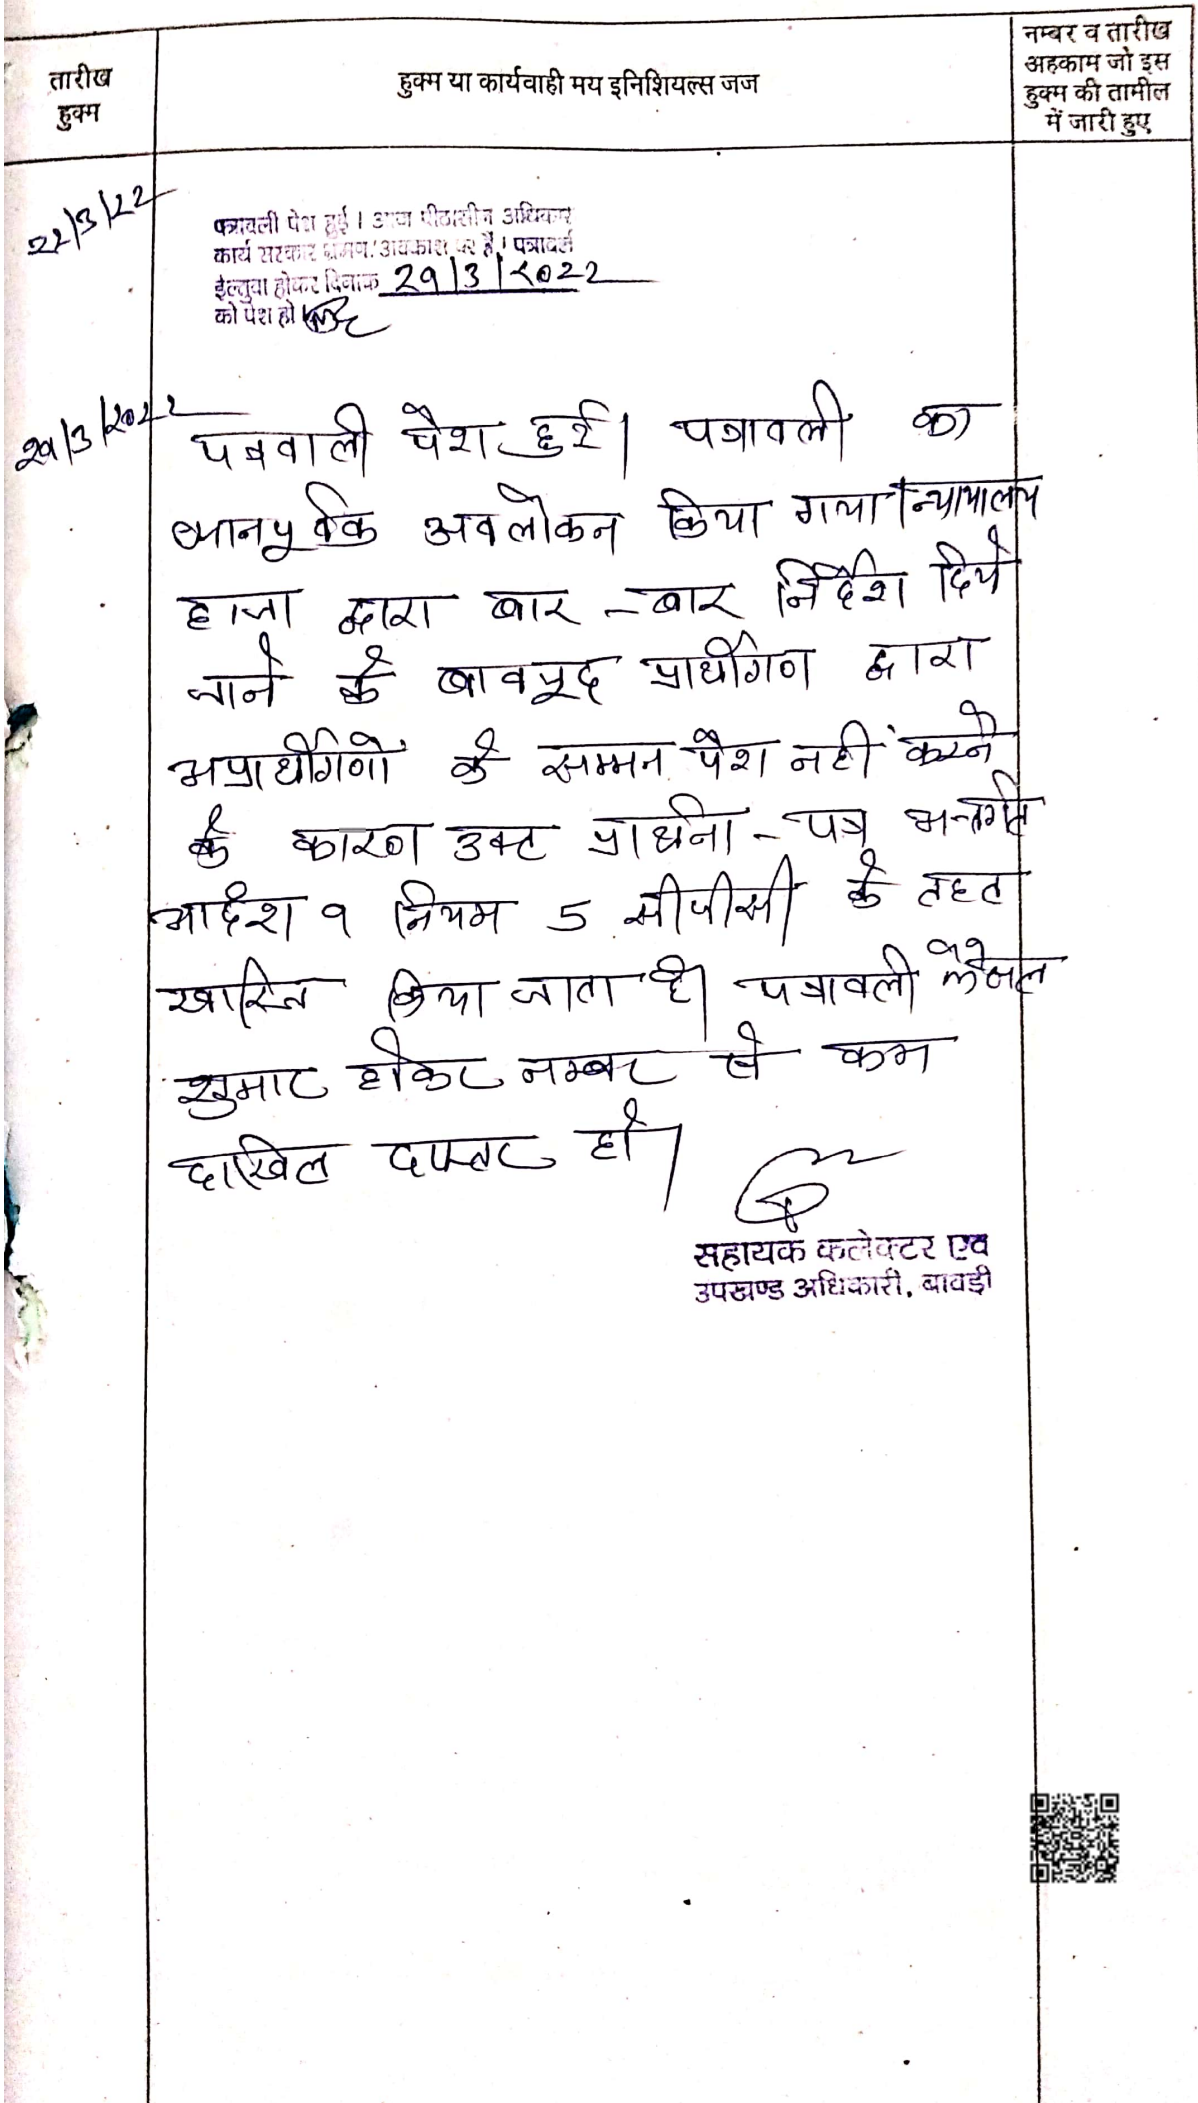 तारीख
हुक्म
हुक्म या कार्यवाही मय इनिशियल्स जज
नम्बर व तारीख
अहकाम जो इस
हुक्म की तामील
में जारी हुए
22/3/22
पत्रावली पेश हुई। आज पीठासीन अधिकार
कार्य सरकार भ्रमण/अवकाश पर है। पत्रावली
ईल्तुवा होकर दिनाक 29/3/2022
को पेश हो
29/3/2022
पत्रवाली पेश हुई। पत्रावली का
ध्यानपूर्वक अवलोकन किया गया। न्यायालय
हाजा द्वारा बार-बार निर्देश दिये
जाने के बावजूद प्रार्थीगण द्वारा
अप्रार्थीगणों के सम्मन पेश नहीं करने
के कारण उक्त प्रार्थना-पत्र अन्तर्गत
आदेश 9 नियम 5 सीपीसी के तहत
खारिज किया जाता है। पत्रावली फैसल
शुमार होकर नम्बर से कम
दाखिल दफ्तर हो।
सहायक कलेक्टर एवं
उपखण्ड अधिकारी, बावड़ी